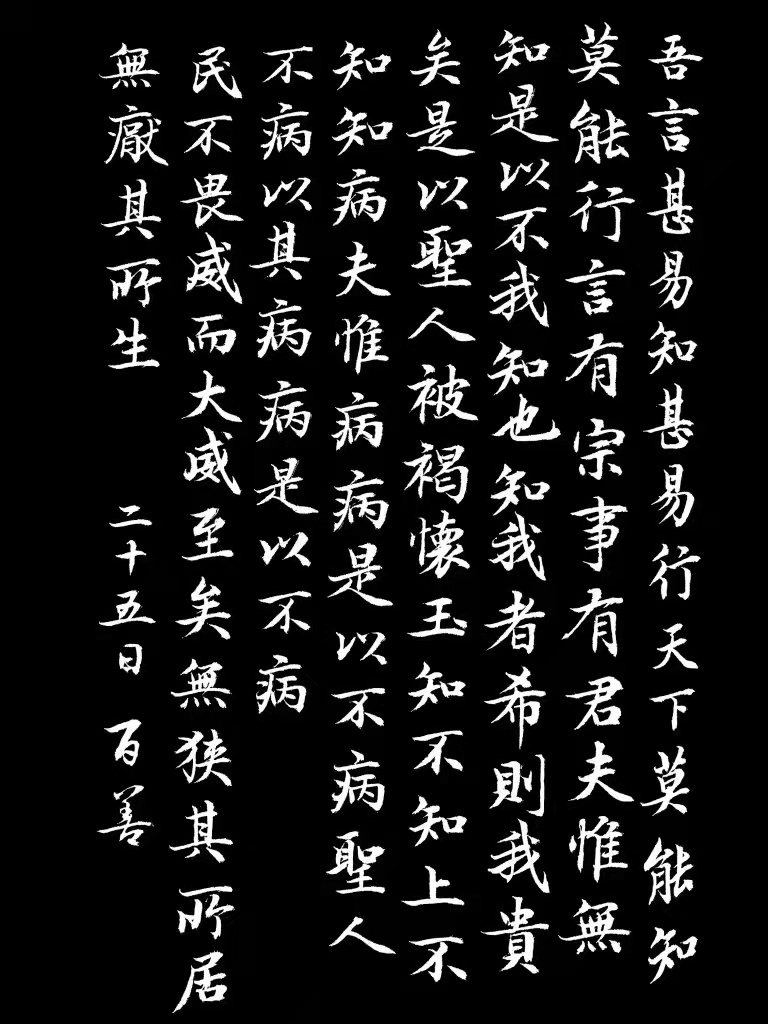 吾言甚易知甚易行天下莫能知
莫能行言有宗事有君夫惟無
知是以不我知也知我者希則我貴
矣是以聖人被褐懷玉知不知上不
知知病夫惟病病是以不病聖人
不病以其病病是以不病
民不畏威而大威至矣無狹其所居
無厭其所生 二十五日 百善